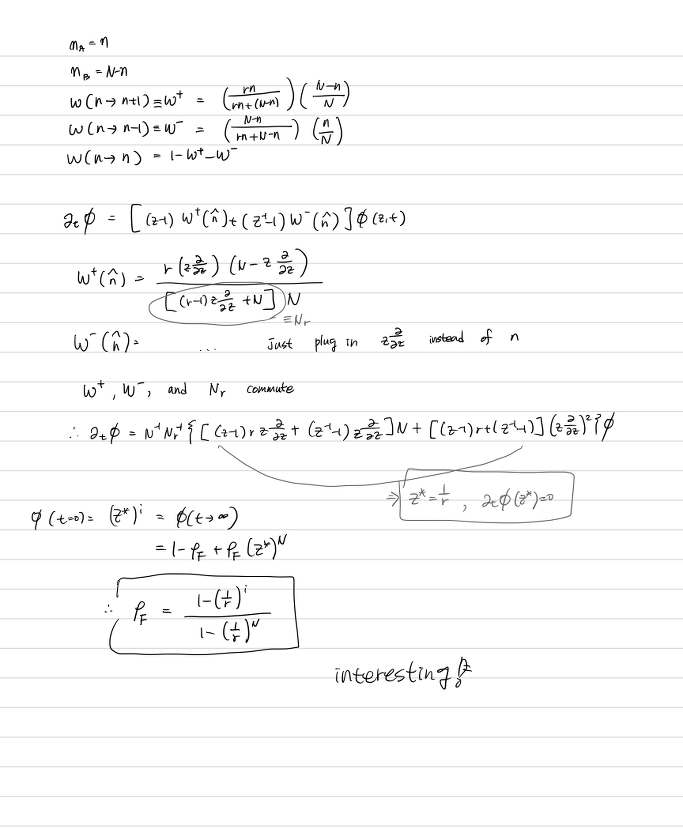 n_A = n
n_B = N-n
w(n→n+1) ≡ w⁺ = (rn/(rn+(N-n))) ((N-n)/N)
w(n→n-1) ≡ w⁻ = ((N-n)/(rn+N-n)) (n/N)
w(n→n) = 1-w⁺-w⁻
∂_t φ = [(z-1) w⁺(n̂) + (z⁻¹-1) w⁻(n̂)] φ(z,t)
w⁺(n̂) = r(z ∂/∂z)(N - z ∂/∂z) / [(r-1) z ∂/∂z + N] N
≡ N_r
w⁻(n̂) = ... just plug in z ∂/∂z instead of n
w⁺, w⁻, and N_r commute
∴ ∂_t φ = N⁻¹ N_r⁻¹ {[(z-1) r z ∂/∂z + (z⁻¹-1) z ∂/∂z] N + [(z-1) r + (z⁻¹-1)] (z ∂/∂z)²} φ
⇒ z* = 1/r , ∂_t φ(z*) = 0
φ(t=0) = (z*)ⁱ = φ(t→∞)
= 1 - ρ_F + ρ_F (z*)ᴺ
∴ ρ_F = (1-(1/r)ⁱ) / (1-(1/r)ᴺ)
interesting